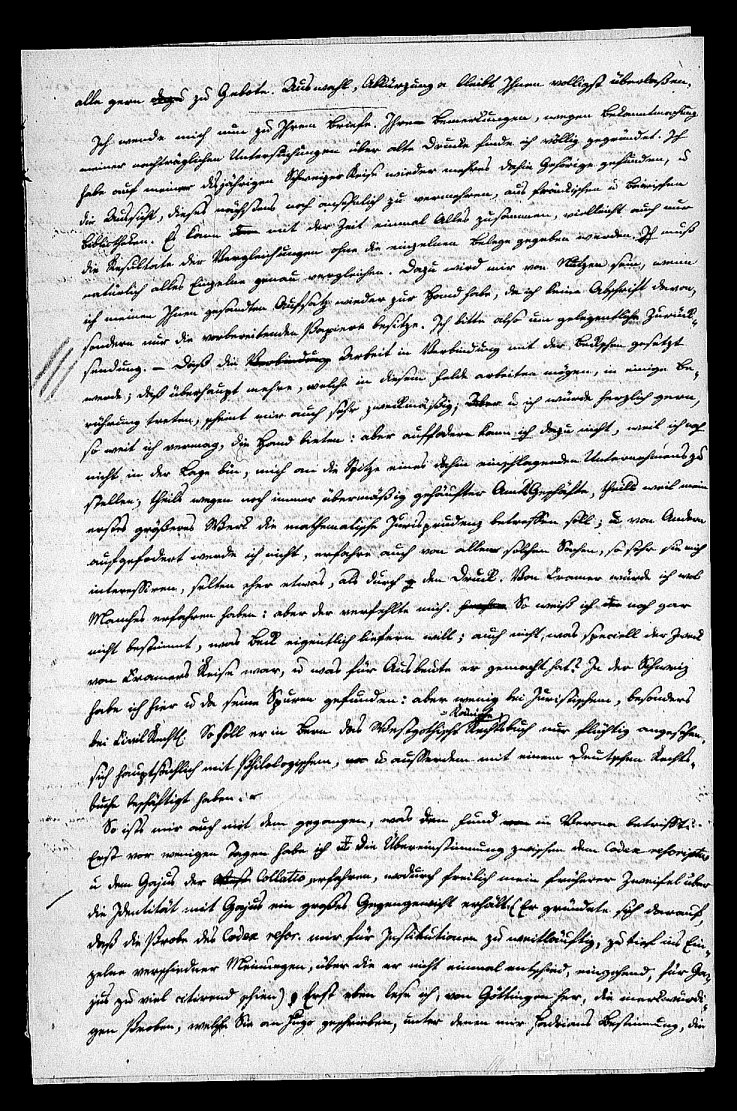 alle gern zu Gebote. Auswahl, Abkürzung bleibt Ihnen völligst überlassen.
Ich wende mich nun zu Ihrem Briefe. Ihre Bemerkungen, wegen Bekanntmachung
meiner nachträglichen Untersuchungen über alte Drucke finde ich völlig gegründet. Ich
habe auf meiner diesjährigen Schweizer Reise wieder mehres dahin Gehörige gefunden, u
die Aussicht, dieses nächstens noch ansehnlich zu vermehren, aus fränkischen u bairischen
Bibliotheken. Es kann mit der Zeit einmal Alles zusammen, vielleicht auch nur
die Resultate der Vergleichungen ohne die einzelnen Belege gegeben werden. Ich muß
natürlich alles Einzelne genau vergleichen. Dazu wird mir von Nutzen sein, wenn
ich meinen Ihnen gesandten Aufsatz wieder zur Hand habe, da ich keine Abschrift davon,
sondern nur die vorbereitenden Papiere besitze. Ich bitte also um gelegentliche Zurück-
sendung. – Daß die Arbeit in Verbindung mit der Beckschen gesetzt
werde; daß überhaupt mehre, welche in diesem Felde arbeiten mögen, in einige Be-
rührung treten, scheint mir auch sehr zweckmäßig; u ich würde herzlich gern,
so weit ich vermag, die Hand bieten: aber auffodern kann ich dazu nicht, weil ich
nicht in der Lage bin, mich an die Spitze eines dahin einschlagenden Unternehmens zu
stellen; theils wegen noch immer übermäßig gehäufter Amtsgeschäfte, theils weil mein
erstes größeres Werk die mathematische Jurisprudenz betreffen soll; u von Andern
aufgefodert werde ich nicht, erfahre auch von allen solchen Sachen, so sehr sie mich
interessiren, selten eher etwas, als durch den Druck. Von Cramer würde ich wol
Manches erfahren haben: aber der verfehlte mich. So weiß ich noch gar
nicht bestimmt, was Beck eigentlich liefern will; auch nicht, was speciell der Zweck
von Cramers Reise war, u was für Ausbeute er gemacht hat? In der Schweiz
habe ich hier u da seine Spuren gefunden: aber wenig bei Juristischem, besonders
bei Civil Recht. So soll er in Bern das Westgothische Rechtsbuch nur flüchtig angesehen,
sich hauptsächlich mit philologischem, u ausserdem mit einem deutschen Rechts-
buche beschäftigt haben. –
So ists mir auch mit dem gegangen, was den Fund in Verona betrifft.
Erst vor wenigen Tagen habe ich die Übereinstimmung zwischen dem Codex rescriptus
u dem Gajus der Collatio, erfahren, wodurch freilich mein früherer Zweifel über
die Identität mit Gajus ein großes Gegengewicht erhält (Er gründete sich darauf,
daß die Probe des Codex rescr. mir für Institutionen zu weitläuftig, zu tief ins Ein-
zelne verschiedner Meinungen, über die er nicht einmal entschied, eingehend, für Ga-
jus zu viel citirend schien) Erst eben lese ich, von Göttingen her, die merkwürdi-
gen Proben, welche Sie an Hugo geschrieben, unter denen mir Hadrians Bestimmung, die